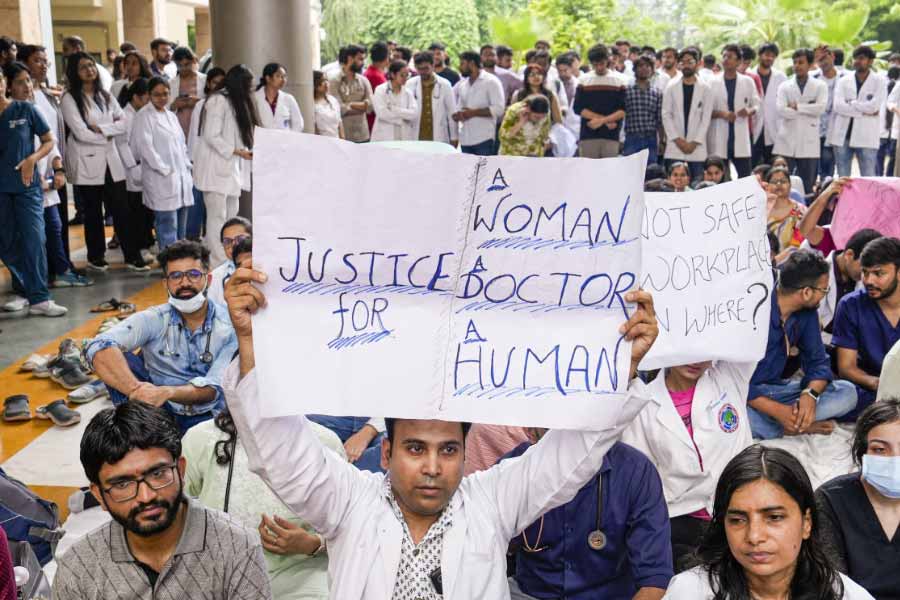 JUSTICE
FOR
A
WOMAN
A
DOCTOR
A
HUMAN
NOT SAFE
WORKPLACE
N WHERE?